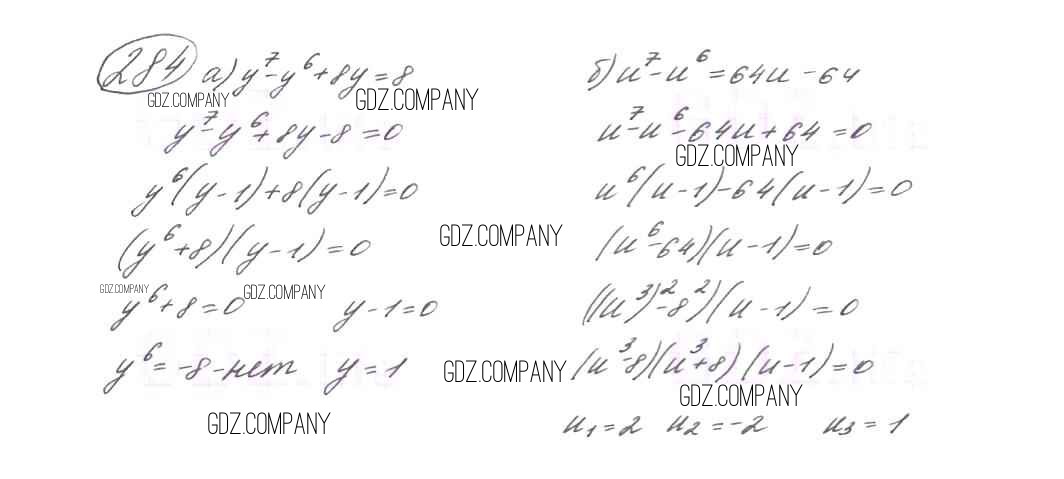 284 а) y⁷-y⁶+8y=8
GDZ.COMPANY GDZ.COMPANY
y⁷-y⁶+8y-8=0
y⁶(y-1)+8(y-1)=0
(y⁶+8)(y-1)=0
GDZ.COMPANY
GDZ.COMPANY GDZ.COMPANY
y⁶+8=0 y-1=0
y⁶=-8-нет y=1
GDZ.COMPANY
GDZ.COMPANY
б) u⁷-u⁶=64u-64
u⁷-u⁶-64u+64=0
GDZ.COMPANY
u⁶(u-1)-64(u-1)=0
(u⁶-64)(u-1)=0
((u³)²-8²)(u-1)=0
(u³-8)(u³+8)(u-1)=0
GDZ.COMPANY
u₁=2 u₂=-2 u₃=1